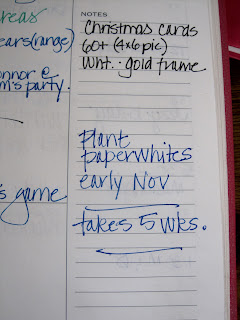 reas
ears(range)
nnor @
m's party.
's game
NOTES
Christmas cards
60+ (4x6 pic)
Wht. - gold frame
Plant
paperwhites
early Nov
takes 5 wks.